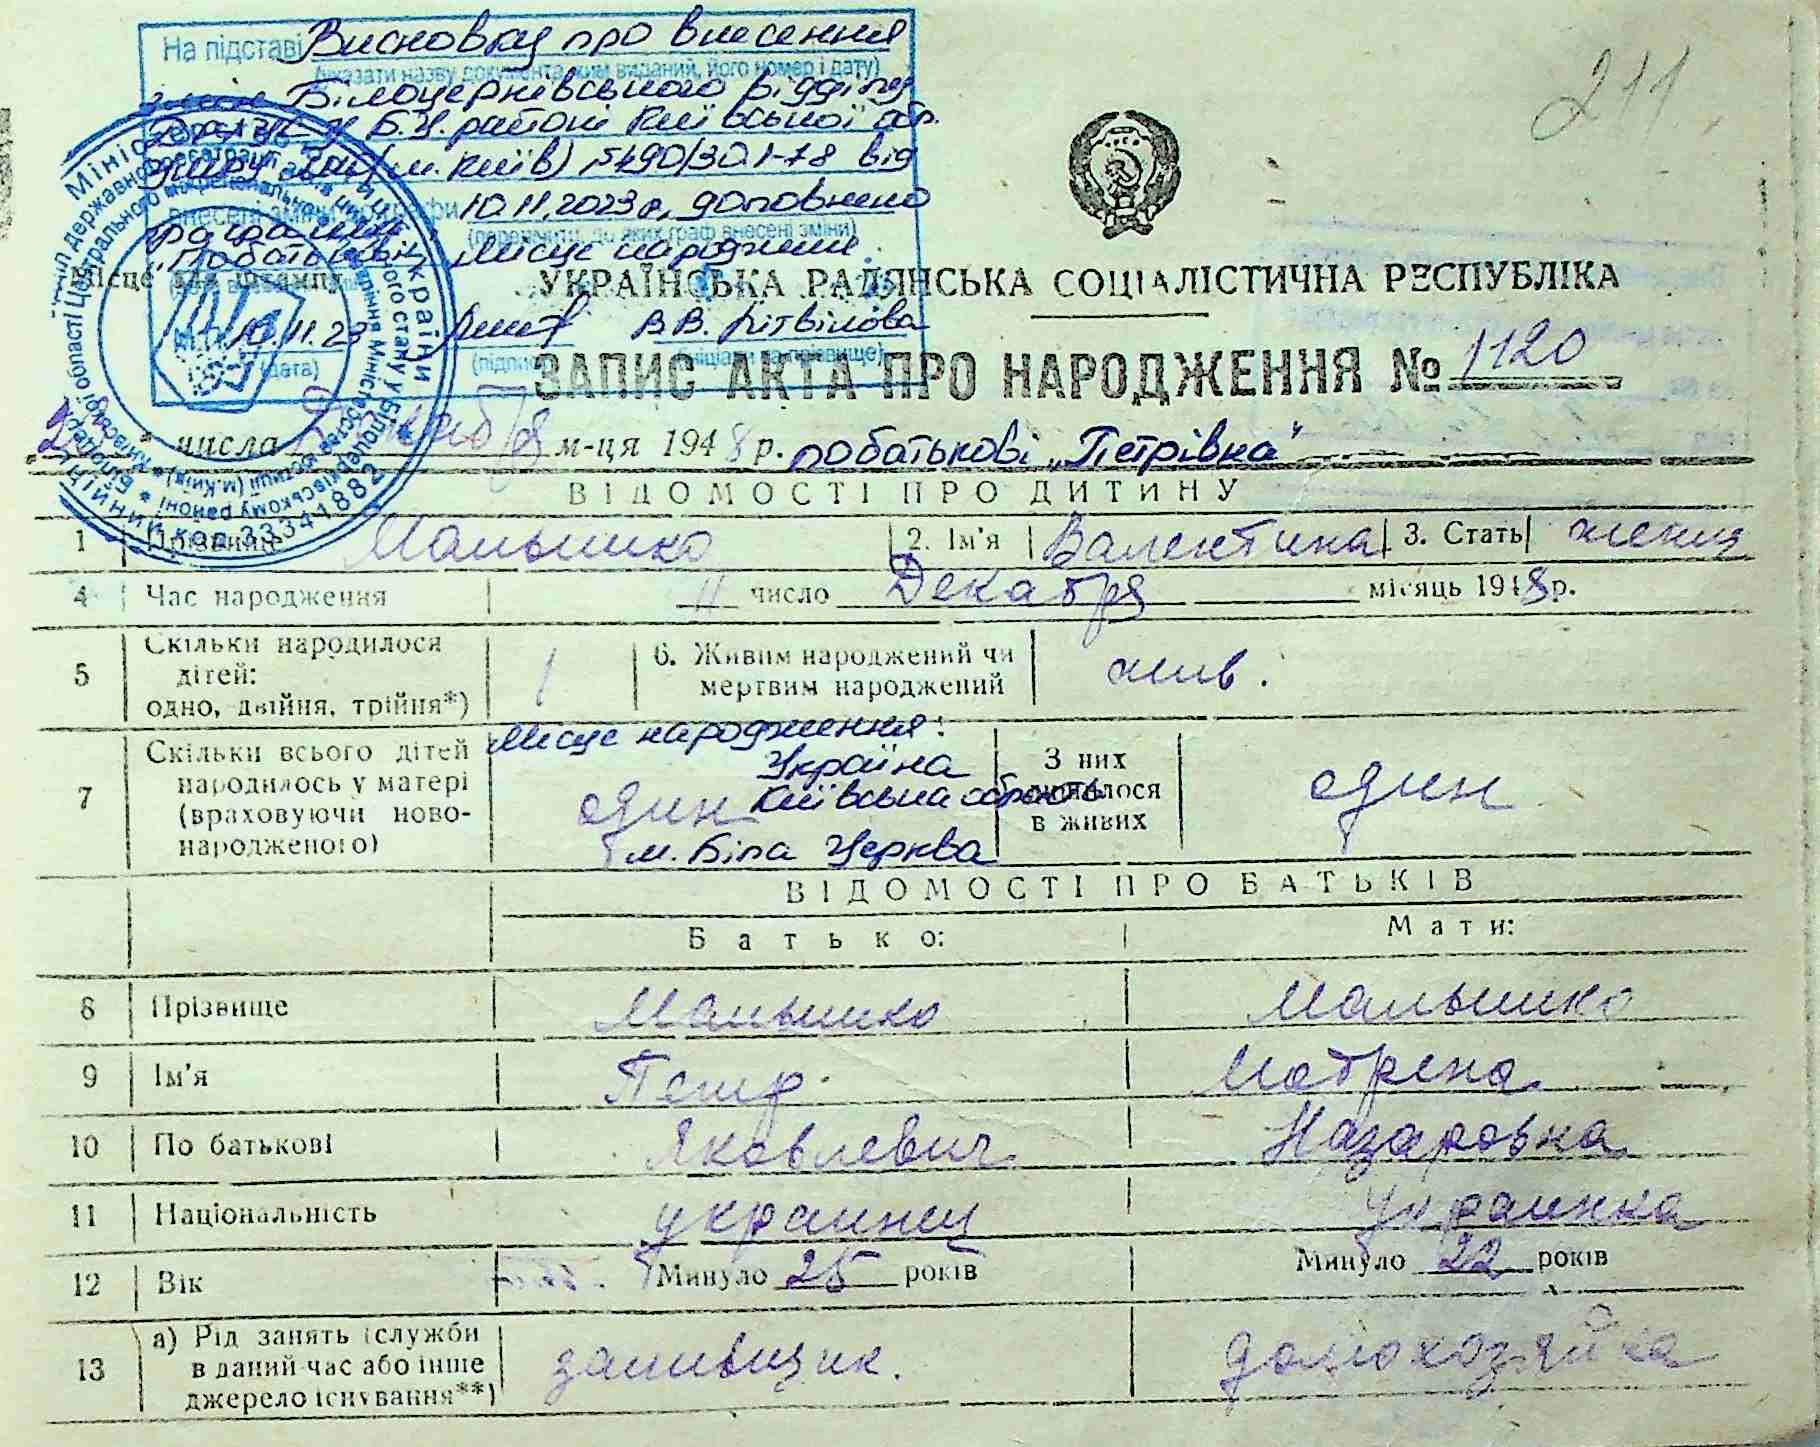 211
На підставі Висновку про внесення
(вказати назву документа, ким виданий, його номер і дату)
змін Білоцерківського відділу
ДРАЦС у Б.Ц. районі Київської обл.
ЦМРУ МЮ (м. Київ) №490/30.1-78 від
внесені зміни до графи 10.11.2023р, доповнено
(перелічити, до яких граф внесені зміни)
графами
"Побатькові", Місце народження.
Місце для штампу
УКРАЇНСЬКА РАДЯНСЬКА СОЦІАЛІСТИЧНА РЕСПУБЛІКА
10.11.23 В.В. Літвінова
(дата) (підпис) (ініціали та прізвище)
ЗАПИС АКТА ПРО НАРОДЖЕННЯ № 1120
числа Декабря м-ця 1948 р. побатькові „Петрівна"
код 33341882
ВІДОМОСТІ ПРО ДИТИНУ
1 Прізвище Малышко 2. Ім'я Валентина 3. Стать женск
4 Час народження 11 число Декабря місяць 1948 р.
5 Скільки народилося дітей: одно, двійня, трійня*) 1 6. Живим народжений чи мертвим народжений жив.
7 Скільки всього дітей народилось у матері (враховуючи новонародженого) один З них лишилося в живих один
Місце народження:
Україна
Київська область
м. Біла Церква
ВІДОМОСТІ ПРО БАТЬКІВ
Батько: Мати:
8 Прізвище Малышко Малышко
9 Ім'я Петр Матрена
10 По батькові Яковлевич Назаровна
11 Національність украинец украинка
12 Вік Минуло 25 років Минуло 22 років
13 а) Рід занять (служби в даний час або інше джерело існування**) домохозяйка